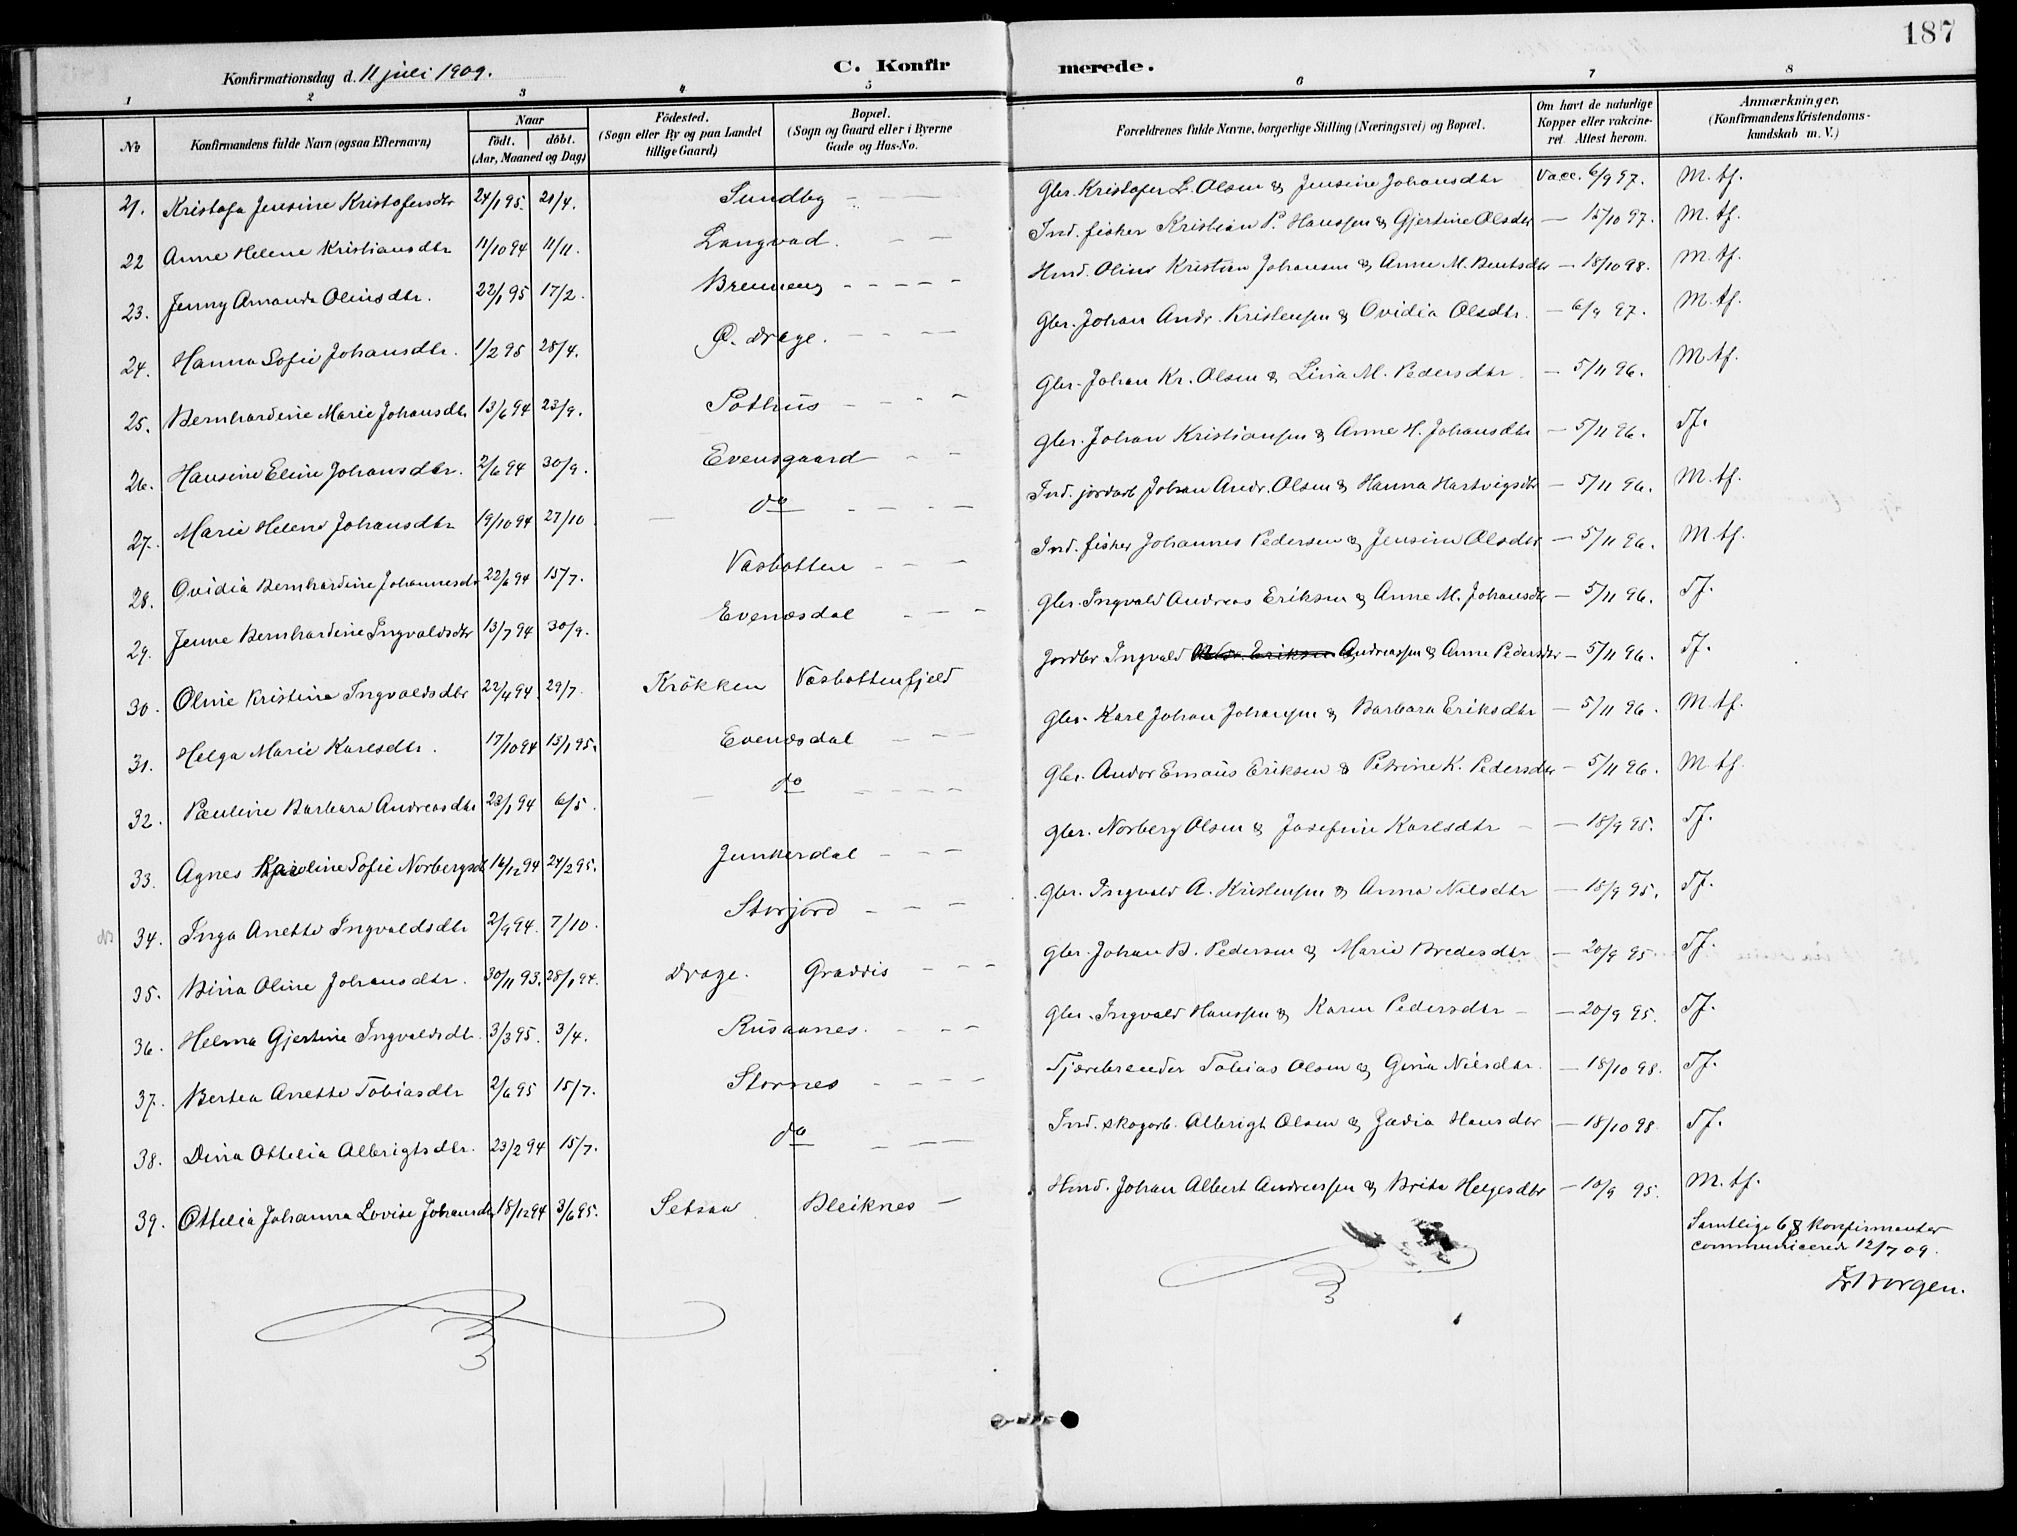 187
Konfirmationsdag d. 11 juli 1909.
C. Konfirmerede.
1 2 3 4 5 6 7 8
No
Konfirmandens fulde Navn (ogsaa Efternavn)
Naar
födt. döbt.
(Aar, Maaned og Dag)
Födested.
(Sogn eller By og paa Landet
tillige Gaard)
Bopæl.
(Sogn og Gaard eller i Byerne
Gade og Hus-No.
Forældrenes fulde Navne, borgerlige Stilling (Næringsvei) og Bopæl.
Om havt de naturlige
Kopper eller vakcine-
ret. Attest herom.
Anmærkninger,
(Konfirmandens Kristendoms-
kundskab m. V.)
21. Kristofa Jensine Kristofersdtr 24/1 95. 21/4. Sundby - - - Gbr. Kristofer L. Olsen & Jensine Johansdtr Vacc. 6/9 97. M. tf.
22 Anne Helene Kristiansdtr 11/10 94 11/11. Langvad. - - Ind. fisker Kristian P. Hanssen & Gjertine Olsdtr - 15/10 97. M. tf.
23. Jenny Amanda Olinsdtr. 22/1 95 17/2. Brenneng - - - - - Hmd. Olins Kristian Johansen & Anne M. Bentsdtr - 18/10 98. M. tf.
24. Hanna Sofie Johansdtr. 1/2 95 28/4. Ø. Drage. - - - - Gbr. Johan Andr. Kristensen & Ovidia Olsdtr. - 6/9 97. M. tf.
25. Bernhardine Marie Johansdtr 13/6 94 23/9. Pothus - - - - Gbr. Johan Kr. Olsen & Lina M. Pedersdtr - 5/11 96. M. tf.
26. Hansine Eline Johansdtr. 2/6 94 30/9. Evensgaard - - Gbr. Johan Kristiansen & Anne H. Johansdtr - 5/11 96. Tf.
27. Marie Helene Johansdtr 19/10 94 27/10 - do - - - - Ind. jordarb Johan Andr. Olsen & Hanna Hartvigsdtr - 5/11 96. M. tf.
28. Ovidia Bernhardine Johannesdtr 22/6 94 15/7. Vasbotten - - - Ind. fisker Johannes Pedersen & Jensine Olsdtr - 5/11 96. M. tf.
29. Jenne Bernhardine Ingvaldsdtr 13/7 94 30/9. Evenesdal - - - Gbr. Ingvald Andreas Eriksen & Anne M. Johansdtr - 5/11 96. Tf.
30. Oline Kristine Ingvaldsdtr 22/4 94. 29/7. Krökken Vasbottenfjeld Jordbr Ingvald Andreassen & Anne Pedersdtr - 5/11 96. Tf.
31. Helga Marie Karlsdtr. 17/10 94 13/1 95. Evenesdal - - - Gbr. Karl Johan Johansen & Barbara Eriksdtr - 5/11 96. M. tf.
32. Pauline Barbara Andreasdtr 23/1 94 6/5. - do - - - - Gbr. Andor Emaus Eriksen & Petrine K. Pedersdtr - 5/11 96. M tf.
33. Agnes Karoline Sofie Norbergsdtr 16/12 94 24/2 95. Junkerdal - - - Gbr. Norberg Olsen & Josefine Karlsdtr - - 18/9 95. Tf.
34. Inga Anette Ingvaldsdtr 2/9 94. 7/10. Storjord - - - Gbr. Ingvald A. Kristensen & Anna Nilsdtr - 18/9 95. Tf.
35. Bina Oline Johansdtr. 30/11 93. 28/1 94. Drage. Graddis - - - Gbr. Johan B. Pedersen & Marie Bredesdtr - 20/9 95. Tf.
36. Helma Gjertine Ingvaldsdtr. 3/3 95. 3/4. Rusaanes. - - - - Gbr. Ingvald Hanssen & Karen Pedersdtr - - 20/9 95. Tf.
37. Bertea Anette Tobiasdtr 2/6 95 15/7. Stornes - - - - Tjærebrænder Tobias Olsen & Gina Nilsdtr. - 18/10 98. Tf.
38. Dina Ottelia Albrigtsdtr. 23/2 94 15/7. do - - - Ind. skogarb. Albrigt Olsen & Hansdtr - 18/10 98. Tf.
39. Ottelia Johanna Lovise Johansdtr 18/12 94 3/6 95. Setsaa Bleiknes - Hmd. Johan Albert Andreassen & Brita Helgesdtr - 10/9 95. M. tf.
Samtlige 68 konfirmanter
communicerede 12/7 09.